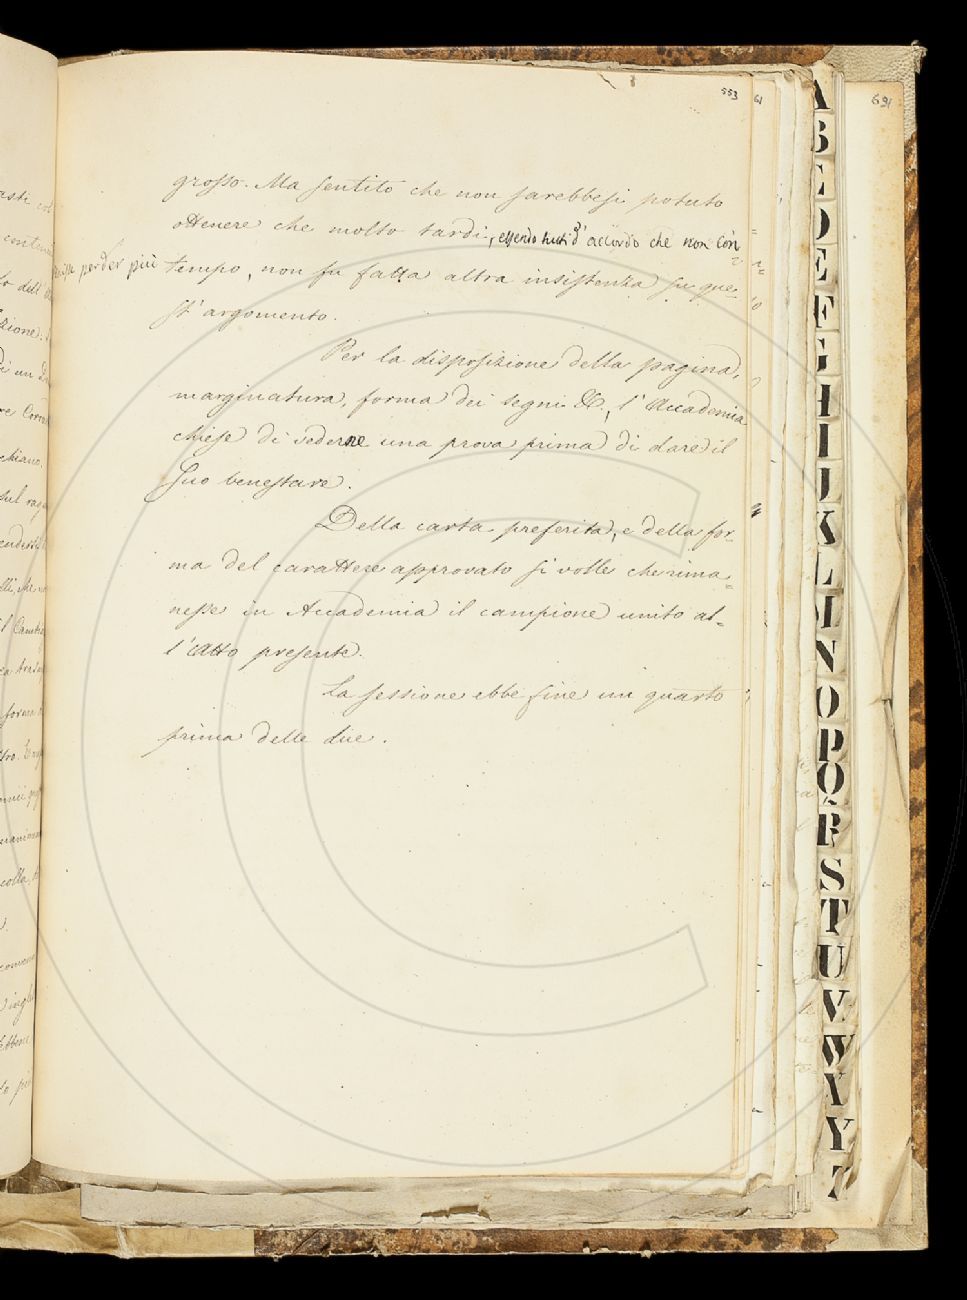 553
61
691
grosso. Ma sentito che non sarebbesi potuto
ottenere che molto tardi, essendo tutti d'accordo che non con=
perder più tempo, non fu fatta altra insistenza su que=
st'argomento.
Per la disposizione della pagina,
marginatura, forma dei segni &c., l'Accademia
chiese di vederne una prova prima di dare il
suo benestare.
Della carta preferita, e della for=
ma del carattere approvato si volle che rima=
nesse in Accademia il campione unito al=
l'Atto presente.
La sessione ebbe fine un quarto
prima delle due.
A
B
C
D
E
F
G
H
I
J
K
L
M
N
O
P
Q
R
S
T
U
V
W
X
Y
Z